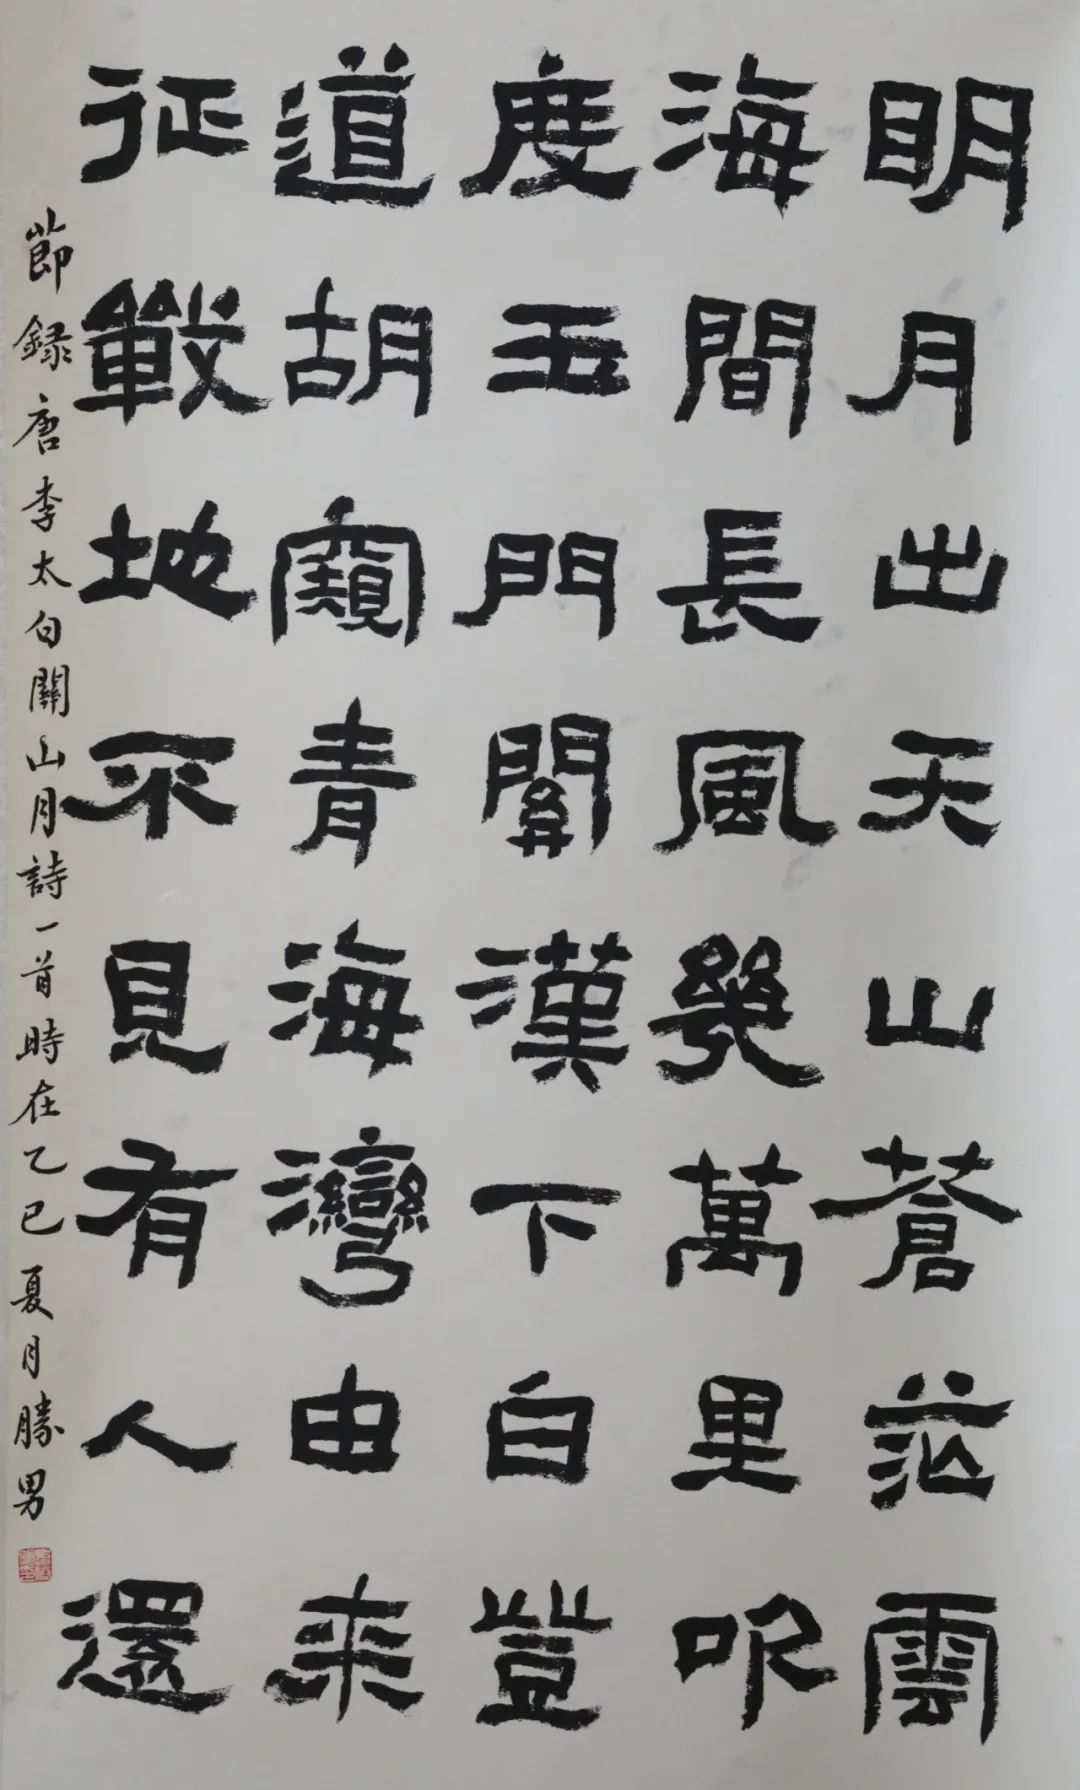 明月出天山蒼茫雲
海間長風幾萬里吹
度玉門關漢下白登
道胡窺青海灣由来
征戰地不見有人還
節録唐李太白關山月詩一首時在乙巳夏月勝男